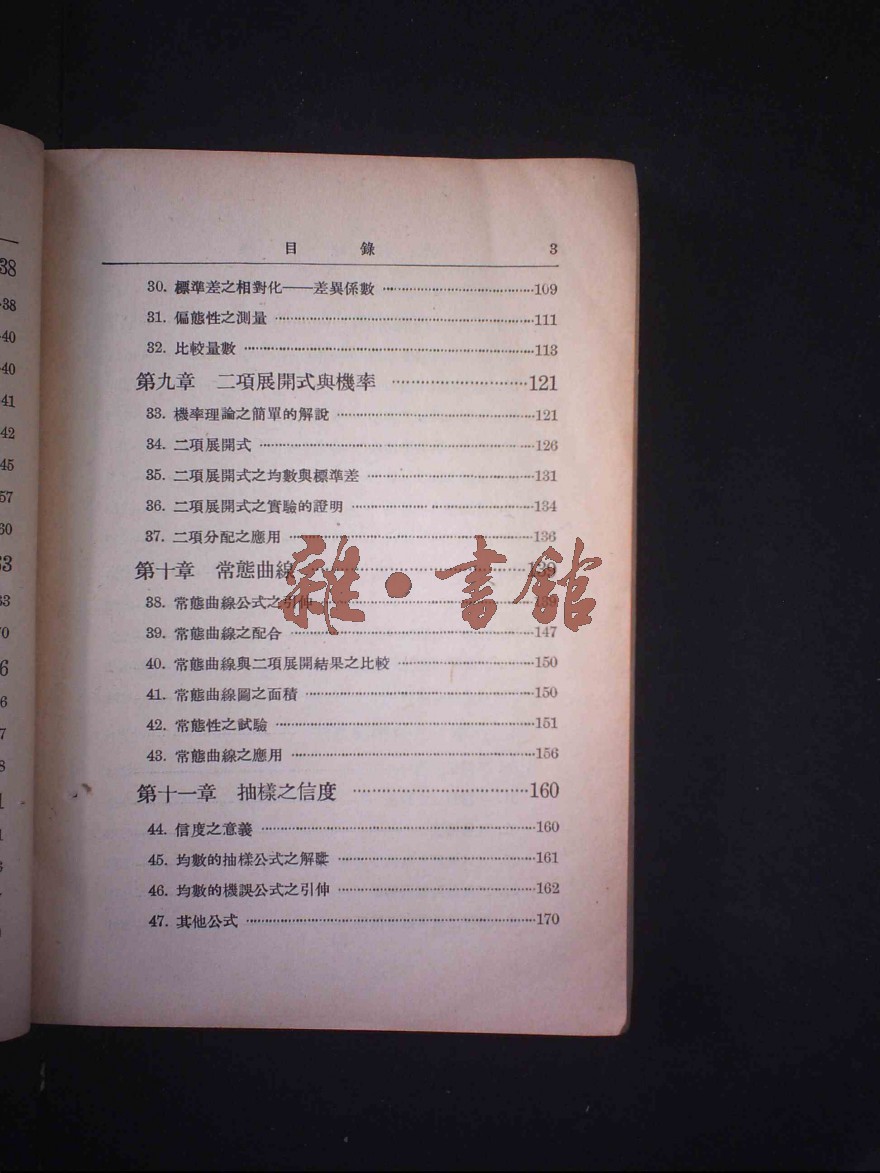 38
38
40
40
41
42
45
57
60
33
70
目錄 3
30. 標準差之相對化——差異係數 ………………109
31. 偏態性之測量 ………………111
32. 比較量數 ………………113
第九章 二項展開式與機率 ………………121
33. 機率理論之簡單的解說 ………………121
34. 二項展開式 ………………126
35. 二項展開式之均數與標準差 ………………131
36. 二項展開式之實驗的證明 ………………134
37. 二項分配之應用 ………………136
第十章 常態曲線 ………………139
38. 常態曲線公式之引伸 ………………139
39. 常態曲線之配合 ………………147
40. 常態曲線與二項展開結果之比較 ………………150
41. 常態曲線圖之面積 ………………150
42. 常態性之試驗 ………………151
43. 常態曲線之應用 ………………156
第十一章 抽樣之信度 ………………160
44. 信度之意義 ………………160
45. 均數的抽樣公式之解釋 ………………161
46. 均數的機誤公式之引伸 ………………162
47. 其他公式 ………………170
雜·書館